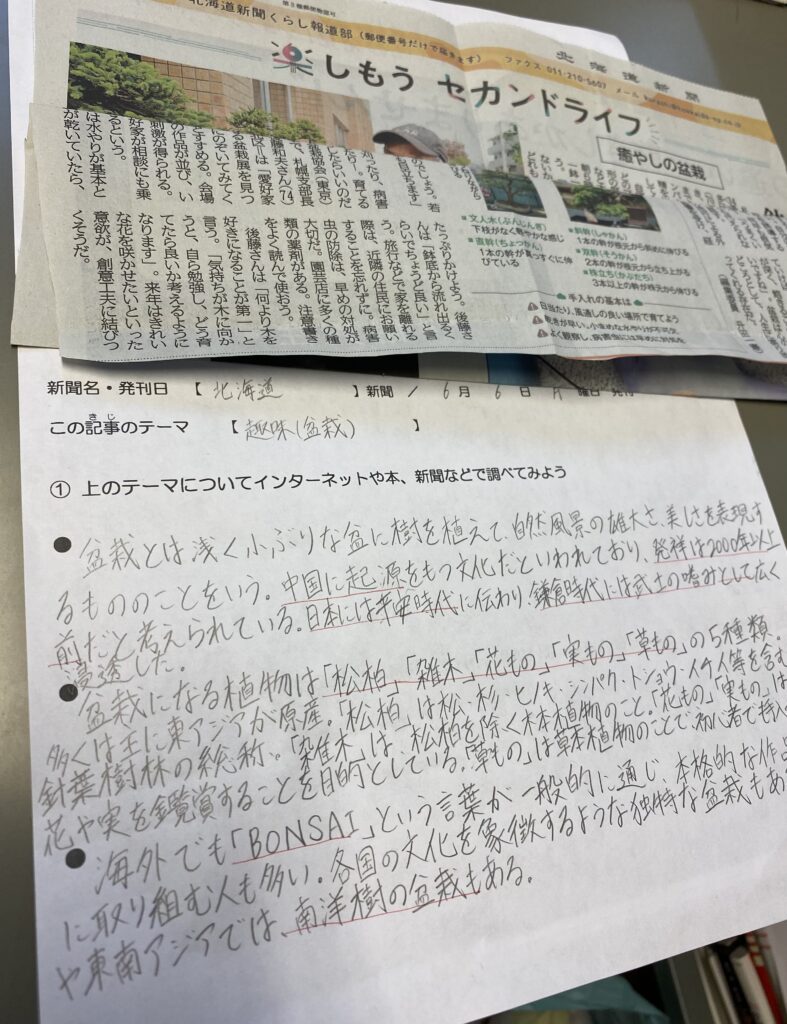 第3種郵便物認可
北海道新聞くらし報道部（郵便番号だけで届きます）
ファクス 011-210-5607
メール
北海道新聞
楽しもう セカンドライフ
癒やしの盆栽
文人木（ぶんじんぎ）
下枝がなく軽やかな感じ
直幹（ちょっかん）
1本の幹が真っすぐに伸びている
斜幹（しゃかん）
1本の幹が根元から斜めに伸びる
双幹（そうかん）
2本の幹が根元から立ち上がる
株立ち（かぶだち）
3本以上の幹が根元から伸びる
手入れの基本は
日当たり、風通しの良い場所で育てよう
たっぷりかけよう。後藤さ
んは「鉢底から流れ出るく
らいでちょうど良い」と言
う。旅行などで家を離れる
際は、近隣の住民にお願い
することを忘れずに。病害
虫の防除は、早めの対処が
大切だ。園芸店に多くの種
類の薬剤がある。注意書き
をよく読んで使おう。
後藤さんは「何より木を
好きになることが第一」と
言う。「気持ちが木に向か
うと、自ら勉強し、どう育
てたら良いか考えるように
なります」。来年はきれい
な花を咲かせたいといった
意欲が、創意工夫に結びつ
くそうだ。
刈ったり、病害
たり―。育てる
したらいいのだ
盆栽協会（東京）
で、札幌支部長
藤和夫さん（74）
区＝は「愛好家
る盆栽展を見つ
にのぞいてみてく
すすめる。会場
の作品が並び、い
刺激が得られる。
好家が相談にも乗
るという。
は水やりが基本と
が乾いていたら、
新聞名・発刊日 【 北海道 】新聞 / 6月 6日 月曜日 発刊
この記事のテーマ 【 趣味(盆栽) 】
① 上のテーマについてインターネットや本、新聞などで調べてみよう
● 盆栽とは浅く小ぶりな盆に樹を植えて、自然風景の雄大さ、美しさを表現す
るもののことをいう。中国に起源をもつ文化だといわれており、発祥は2000年以上
前だと考えられている。日本には平安時代に伝わり、鎌倉時代には武士の嗜みとして広く
浸透した。
● 盆栽になる植物は「松柏」「雑木」「花もの」「実もの」「草もの」の5種類。
多くは主に東アジアが原産。「松柏」は松・杉・ヒノキ・シンパク・トショウ・イチイ等を含む
針葉樹林の総称、「雑木」は、松柏を除く木本植物のこと。「花もの」「実もの」は
花や実を鑑賞することを目的としている。「草もの」は草本植物のことで、初心者で
● 海外でも「BONSAI」という言葉が一般的に通じ、本格的な作品
に取り組む人も多い。各国の文化を象徴するような独特な盆栽もあ
や東南アジアでは、南洋樹の盆栽もある。